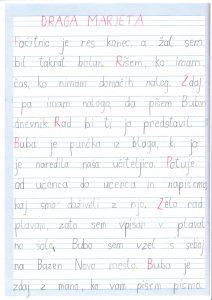 DRAGA MARJETA
Počitnic je res konec, a žal sem
bil takrat bolan. Rišem, ko imam
čas, ko nimam domačih nalog. Zdaj
pa imam nalogo, da pišem Bubin
dnevnik. Rad bi ti jo predstavil.
Buba je punčka iz blaga, ki jo
je naredila naša učiteljica. Potuje
od učenca do učenca in napišemo,
kaj smo doživeli z njo. Zelo rad
plavam, zato sem vpisan v plaval
no šolo. Bubo sem vzel s seboj
na Bazen Novo mesto. Buba je
zdaj z mano, ko vam pišem pismo.